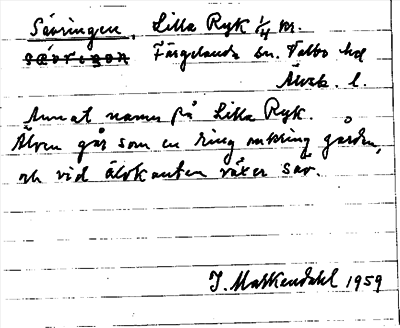 Sävringen. Lilla Ryk 1/4 m.
Sävringen Färgelanda sn. Valbo hd
Älvsb. l.
Annat namn på Lilla Ryk.
Älven går som en ring omkring gården,
och vid älvkanten växer säv.
J. Markendahl 1959